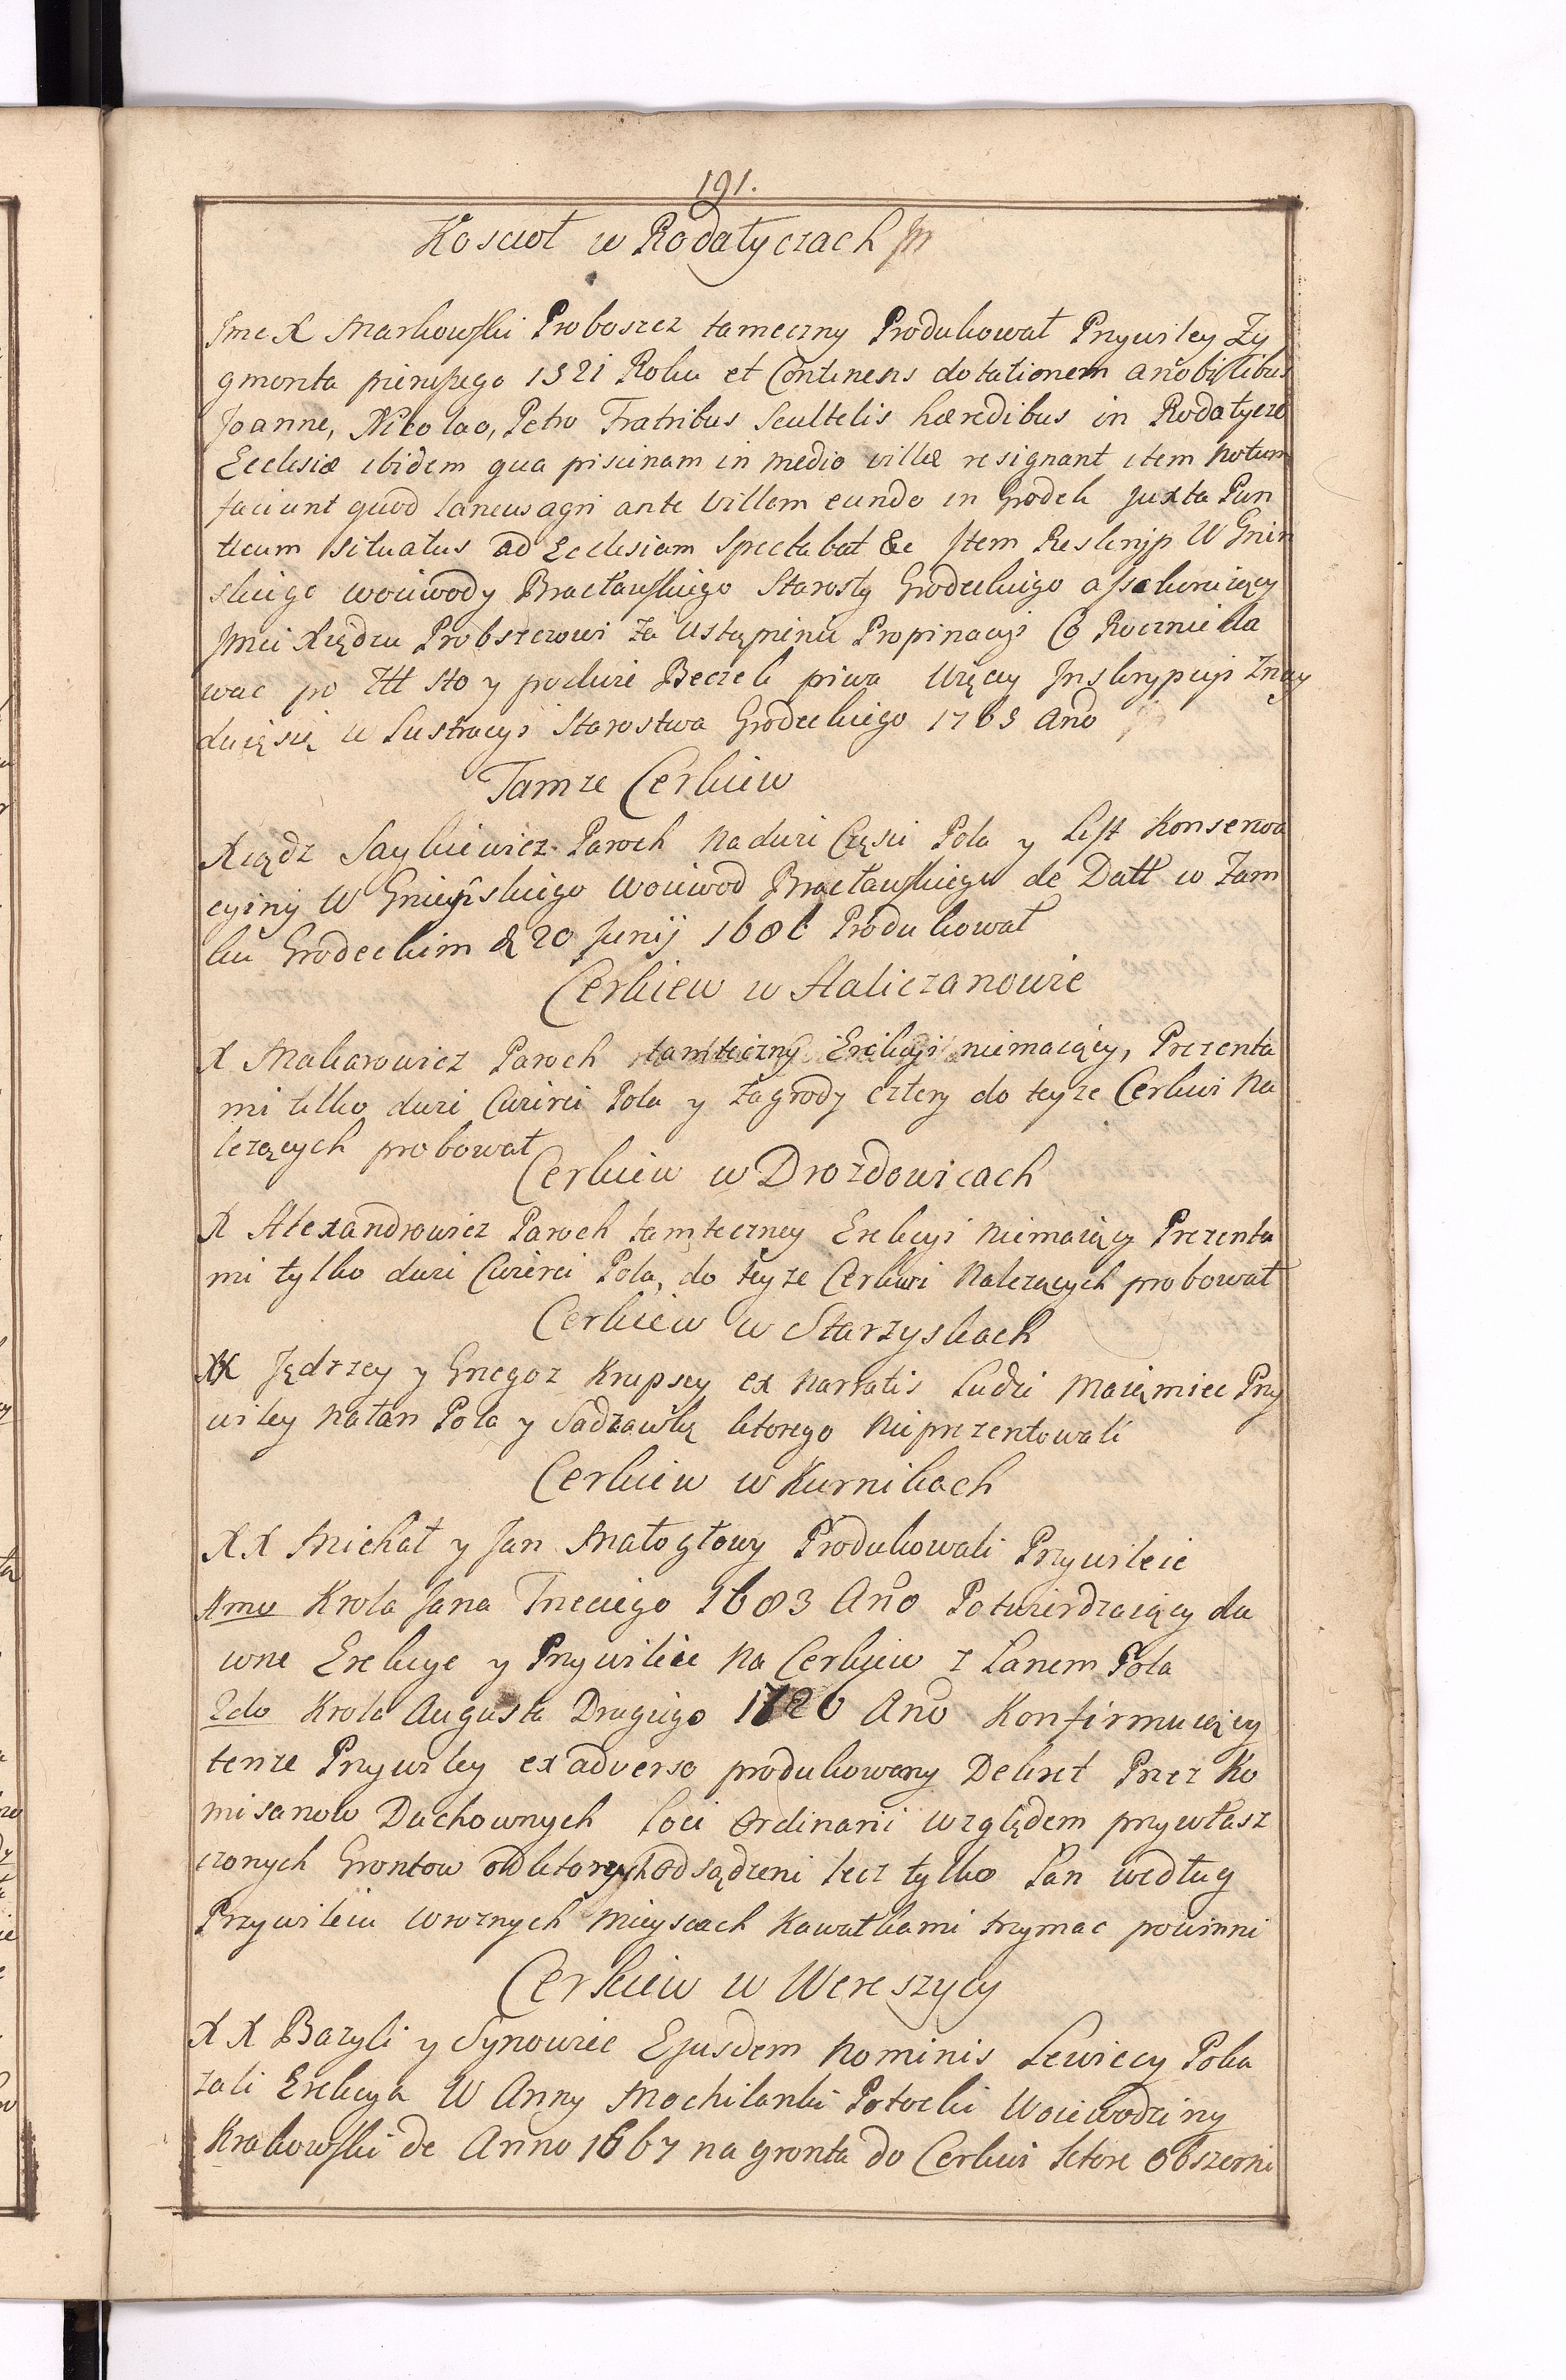 191.
Koscioł w Rodatyczach
Jmc X Markowski Proboszcz tameczny Produkował Przywiley Zy
gmonta pierwszego 1521 Roku et Continens dotationem a Nobilibus
Joanne, Nicolao, Petro Fratribus Scultetis hæredibus in Rodatycze
Ecclesiæ ibidem qua piscinam in medio villæ resignant item Notum
faciunt quod laneus agri ante Villam eundo in Grodek juxta Pon
ticum situatus ad Ecclesiam Spectabat &c Item Reskrijp W Gnin
skiego Woiewody Bracławskiego Starosty Grodeckiego assekuruiący
Jmci Xiędzu Probszczowi Za Ustąpienie Propinacyi Co Rocznie da
wac po Złł sto y po dwie Beczek piwa Więcey Inskrypcyi Znay
duię się w Lustracyi Starostwa Grodeckiego 1765 Ano
Tamze Cerkiew
Xiądz Saykiewicz Paroch na dwie Części Pola y List Konserwa
cyiny W Gnieńskiego Woiewod Bracławskiego de Datt w Zam
ku Grodeckim d 20 Junij 1681 Produkował
Cerkiew w Haliczanowie
X Makarowicz Paroch tamteczny Erekcyi niemaiący, Prezenta
mi tilko dwie Cwierci Pola y Zagrody cztery do teyze Cerkwi Na
lezących probował
Cerkiew w Drozdowicach
X Alexandrowicz Paroch tamteczney Erekcyi niemaiący Prezenta
mi tylko dwie Cwierci Pola, do teyze Cerkwi Nalezących probował
Cerkiew w Starzyskach
XX Jędrzey y Grzegorz Krupscy ex Narratis Ludzi Maią miec Przy
wiley na łan Pola y Sadzawkę ktorego Nieprezentowali
Cerkiew w Kurnikach
XX Michał y Jan Małogłowy Produkowali Przywileie
Xmo Krola Jana Trzeciego 1683 Ano Potwierdzaiący da
wne Erekcye y Przywileie na Cerkiew z Łanem Pola
2do Krola Augusta Drugiego 1720 Ano Konfirmuiący
tenze Przywiley ex adverso produkowany Dekret Przez Ko
misarzow Duchownych loci Ordinarii względem przywłasz
czonych Grontow od ktorych odsądzeni lecz tylko Łan według
Przywileiu w roznych mieyscach Kawałkami trzymac powinni
Cerkiew w Wereszycy
XX Bazyli y Synowiec Ejusdem Nominis Lewiccy Poka
zali Erekcya W Anny Mochilanki Potocki Woiewodziny
Krakowski de Anno 1667 na gronta do Cerkwi ktore obszerni